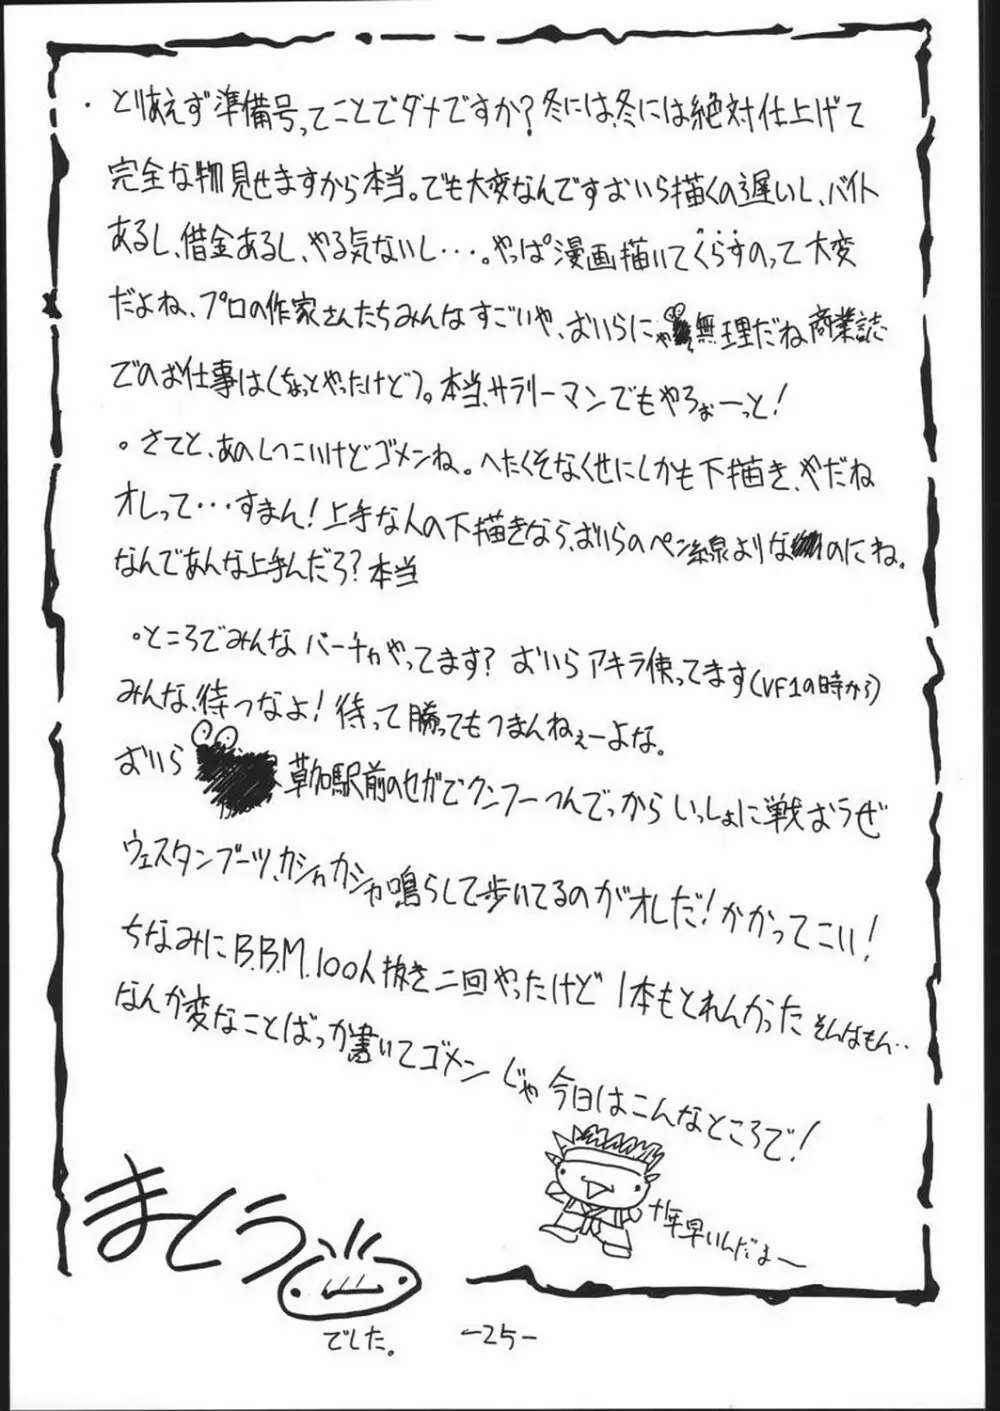 ・とりあえず準備号ってことでダメですか?冬には、冬には絶対仕上げて
完全な物見せますから本当。でも大変なんですおいら描くの遅いし、バイト
あるし、借金あるし、やる気ないし・・・。やっぱ漫画描いてくらすのって大変
だよね、プロの作家さんたちみんなすごいや、おいらにゃ無理だね商業誌
でのお仕事は(ちょっとやったけど)。本当、サラリーマンでもやろぉーっと!
。さてと、あのしつこいけどゴメンね。へたくそなくせにしかも下描き、やだね
オレって・・・すまん!上手な人の下描きなら、おいらのペン線よりな のにね。
なんであんな上手んだろ?本当
。ところでみんなバーチャやってます?おいらアキラ使ってます(VF1の時から)
みんな、待つなよ!待って勝ってもつまんねぇーよな。
おいら 草加駅前のセガでクンフーつんでっからいっしょに戦おうぜ
ウェスタンブーツ、カシャカシャ鳴らして歩いてるのがオレだ!かかってこい!
ちなみにB.B.M.100人抜き二回やったけど1本もとれんかった そんなもん・・
なんか変なことばっか書いてゴメン じゃ今日はこんなところで!
十年早いんだよー
まとう
でした。
-25-